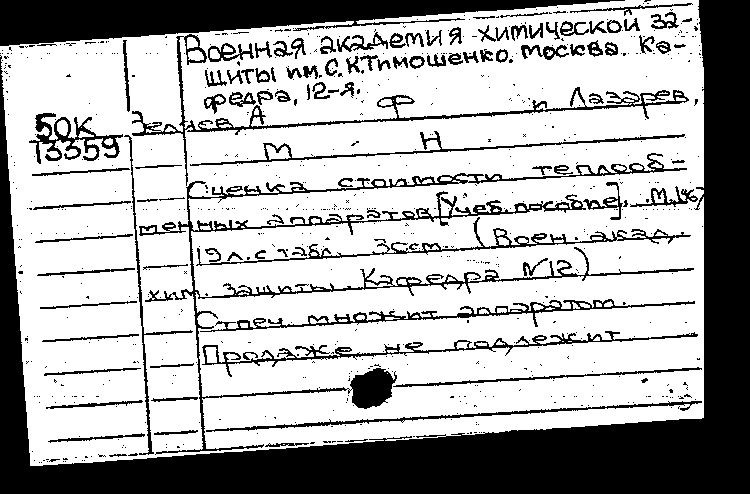 Военная академия химической за-
щиты им. С.К.Тимошенко. Москва. Ка-
федра, 12-я.
50К
13359
А Ф и Лазарев,
М Н
Оценка стоимости теплооб-
менных аппаратов [Учеб. пособие]. М.,
19 л. с табл. 3 см. (Воен. акад.
хим. защиты. Кафедра N12)
Отпеч. множит. аппаратом.
Продаже не подлежит